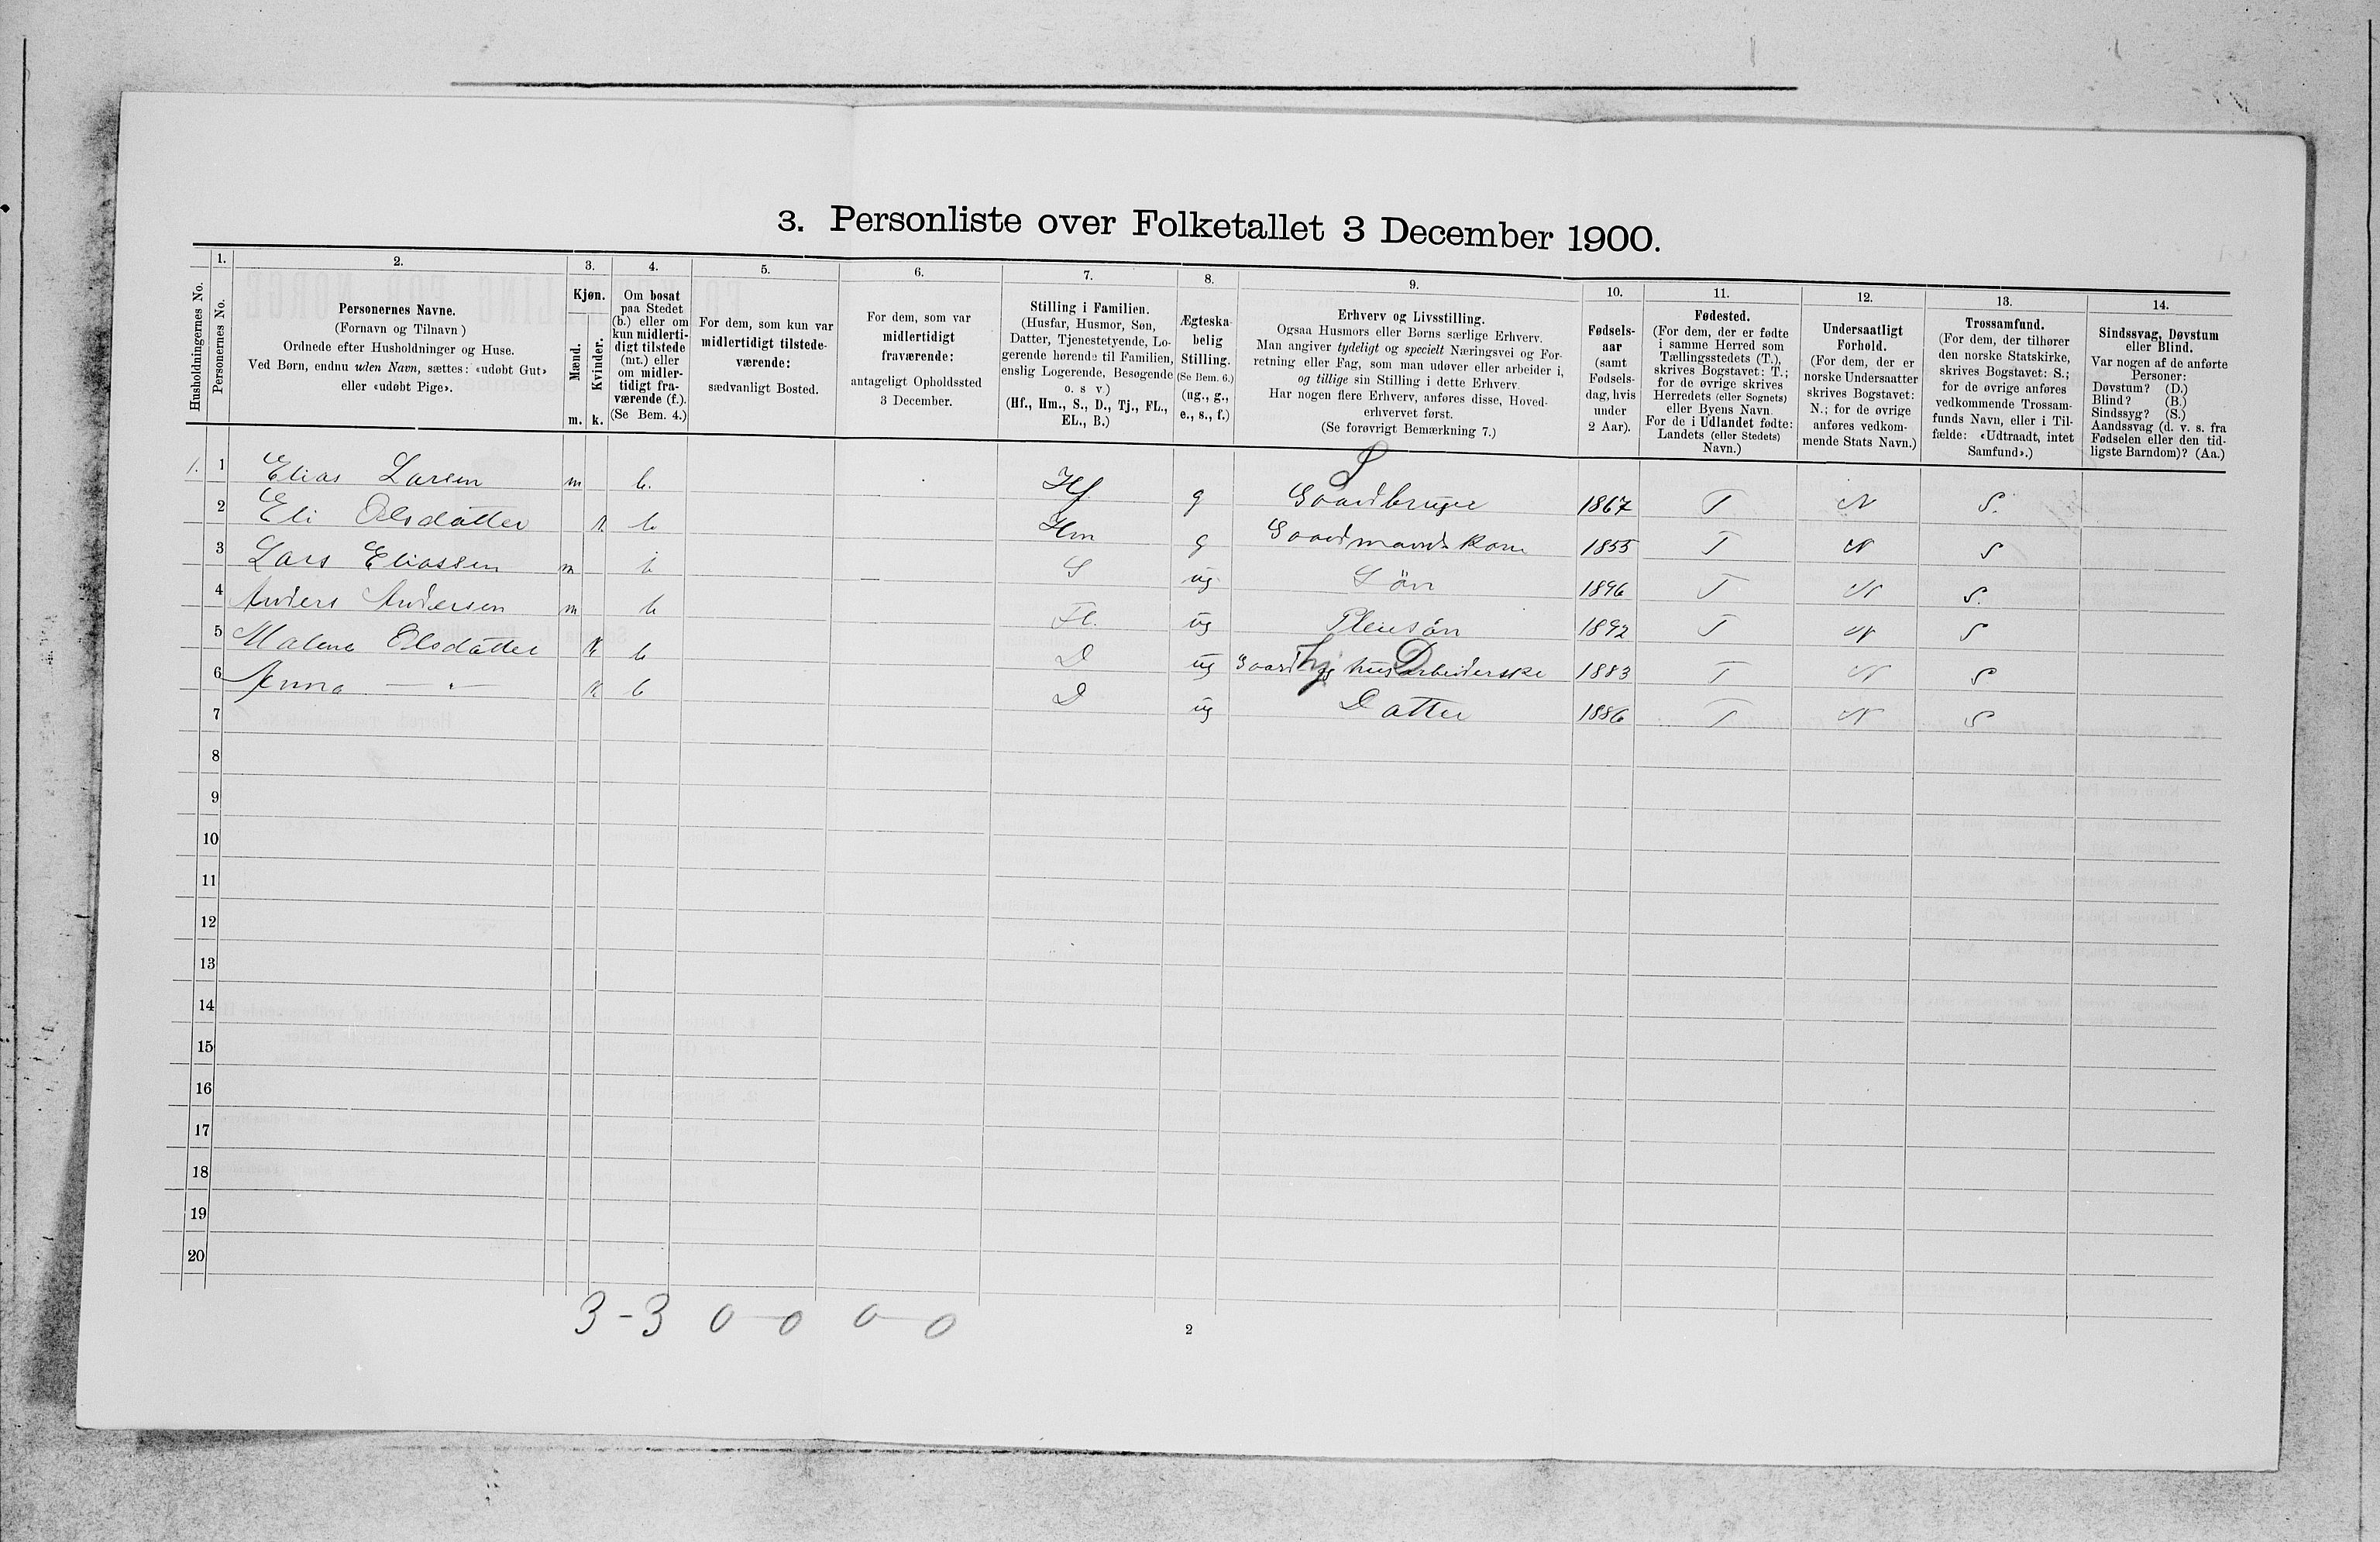 3. Personliste over Folketallet 3 December 1900.
Husholdningernes No.
1. Personernes No.
2. Personernes Navne.
(Fornavn og Tilnavn)
Ordnede efter Husholdninger og Huse.
Ved Børn, endnu uden Navn, sættes: «udøbt Gut»
eller «udøbt Pige».
3. Kjøn.
Mænd. m.
Kvinder. k.
4. Om bosat
paa Stedet
(b.) eller om
kun midlerti-
digt tilstede
(mt.) eller
om midler-
tidigt fra-
værende (f.).
(Se Bem. 4.)
5. For dem, som kun var
midlertidigt tilstede-
værende:
sædvanligt Bosted.
6. For dem, som var
midlertidigt
fraværende:
antageligt Opholdssted
3 December.
7. Stilling i Familien.
(Husfar, Husmor, Søn,
Datter, Tjenestetyende, Lo-
gerende hørende til Familien,
enslig Logerende, Besøgende
o. s v.)
(Hf., Hm., S., D., Tj., FL.,
EL., B.)
8. Ægteska-
belig
Stilling.
(Se Bem. 6.)
(ug., g.,
e., s., f.)
9. Erhverv og Livsstilling.
Ogsaa Husmors eller Børns særlige Erhverv.
Man angiver tydeligt og specielt Næringsvei og For-
retning eller Fag, som man udøver eller arbeider i,
og tillige sin Stilling i dette Erhverv.
Har nogen flere Erhverv, anføres disse, Hoved-
erhvervet først.
(Se forøvrigt Bemærkning 7.)
10. Fødsels-
aar
(samt
Fødsels-
dag, hvis
under
2 Aar).
11. Fødested.
(For dem, der er fødte
i samme Herred som
Tællingsstedets (T.),
skrives Bogstavet: T.;
for de øvrige skrives
Herredets (eller Sognets)
eller Byens Navn.
For de i Udlandet fødte:
Landets (eller Stedets)
Navn.)
12. Undersaatligt
Forhold.
(For dem, der er
norske Undersaatter
skrives Bogstavet:
N.; for de øvrige
anføres vedkom-
mende Stats Navn.)
13. Trossamfund.
(For dem, der tilhører
den norske Statskirke,
skrives Bogstavet: S.;
for de øvrige anføres
vedkommende Trossam-
funds Navn, eller i Til-
fælde: «Udtraadt, intet
Samfund».)
14. Sindssvag, Døvstum
eller Blind.
Var nogen af de anførte
Personer:
Døvstum? (D.)
Blind? (B.)
Sindssyg? (S.)
Aandssvag (d. v. s. fra
Fødselen eller den tid-
ligste Barndom)? (Aa.)
1. 1 Elias Larsen m b. Hf g Gaardbruger 1867 T N S.
2 Eli Olsdatter k b. Hm g Gaardmands Kone 1855 T N S
3 Lars Eliassen m b S ug Søn 1896 T N S.
4 Anders Andersen m b Fl. ug Pleiesøn 1892 T N S
5 Malena Olsdatter k b D ug Gaard og hus Arbeiderske Tj D 1883 T N S
6 Anna — " — k b D ug Datter 1886 T N S
7
8
9
10
11
12
13
14
15
16
17
18
19
20
3 - 3 0 - 0 0 - 0
2